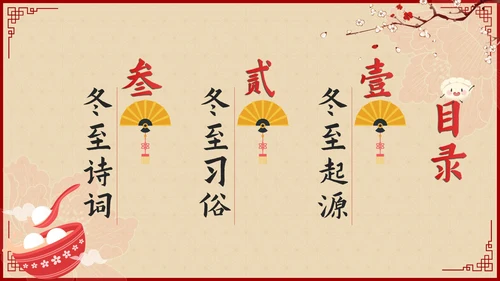 目录
壹
冬至起源
贰
冬至习俗
叁
冬至诗词